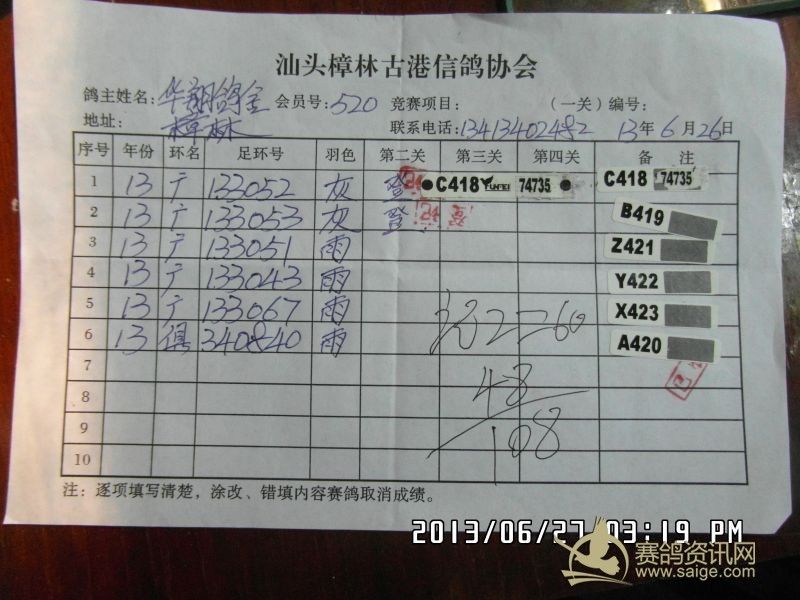 汕头樟林古港信鸽协会
鸽主姓名：华翔鸽舍 会员号：520 竞赛项目： （一关）编号：
地址：樟林 联系电话：13413402482 13年6月26日
序号 年份 环名 足环号 羽色 第二关 第三关 第四关 备注
1 13 广 133052 灰 登 C418 74735 C418 74735
2 13 广 133053 灰 登 B419
3 13 广 133051 雨 Z421
4 13 广 133043 雨 Y422
5 13 广 133067 雨 X423
6 13 340840 雨 A420
7
8 48
9 108
10
注：逐项填写清楚，涂改、错填内容赛鸽取消成绩。
2013/06/27 03:19 PM
赛鸽资讯网
www.saige.com